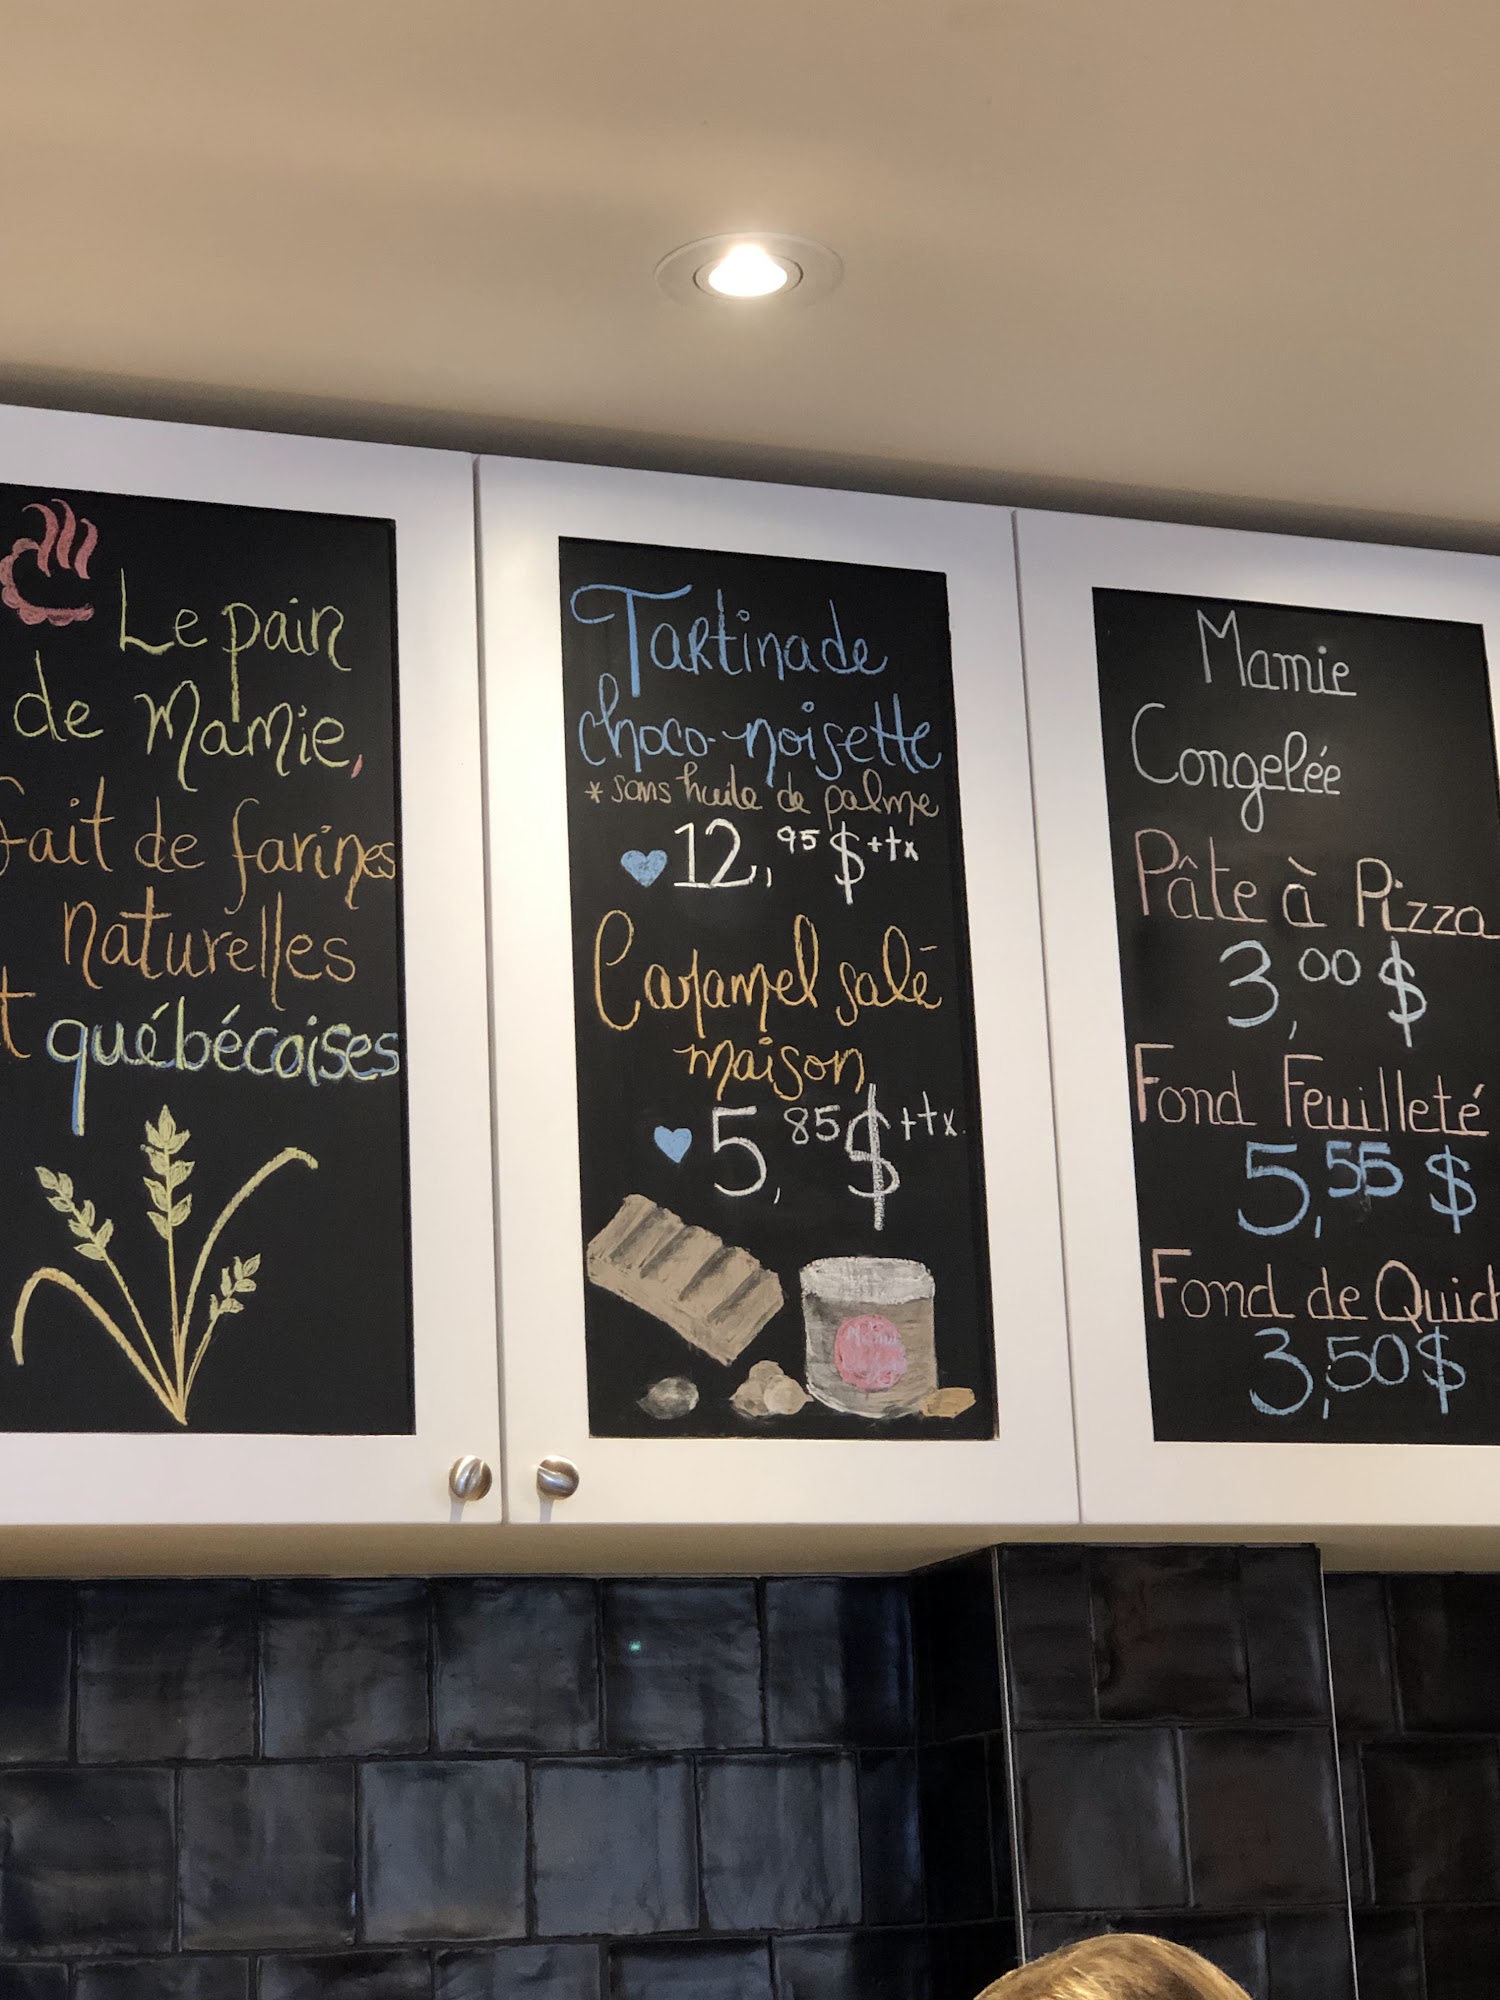 Le pain
de Mamie,
fait de farines
naturelles
québécoises
Tartinade
choco-noisette
*sans huile de palme
12,95$+tx
Caramel salé
maison
5,85$+tx.
Mamie
Congelée
Pâte à Pizza
3,00$
Fond Feuilleté
5,55$
Fond de Quich
3,50$